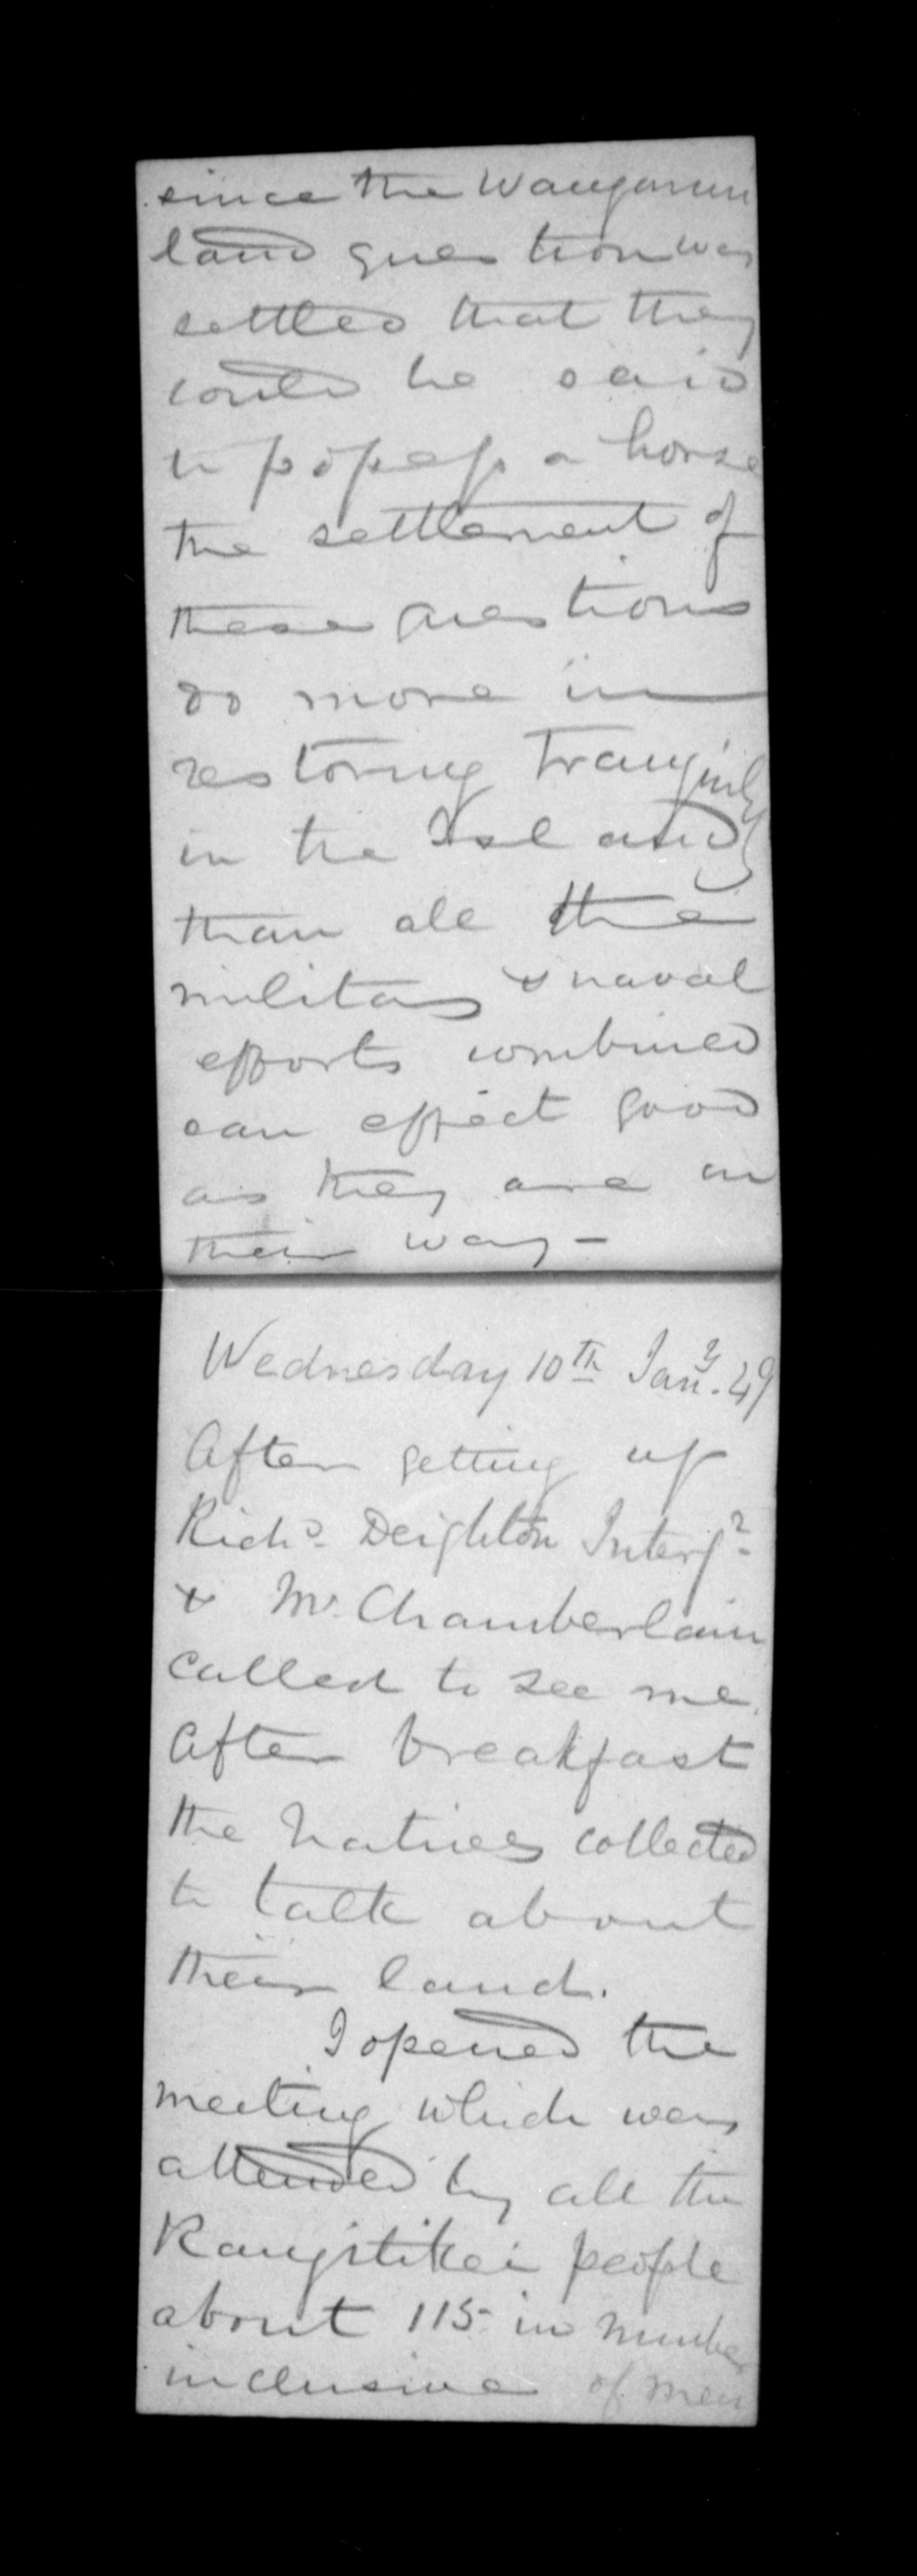 since the Wanganui
land question was
settled that they
could be said
to possess a horse
the settlement of
these questions
do more in
restoring tranquility
in the Island
than all the
military & naval
efforts combined
can effect good
as they are in
their way -
Wednesday 10th Jany. 49
After getting up
Richd. Deighton Interpr.
& Mr. Chamberlain
called to see me.
After breakfast
the Natives collected
to talk about
their land.
I opened the
meeting which was
attended by all the
Rangitikei people
about 115 in number
inclusive of men